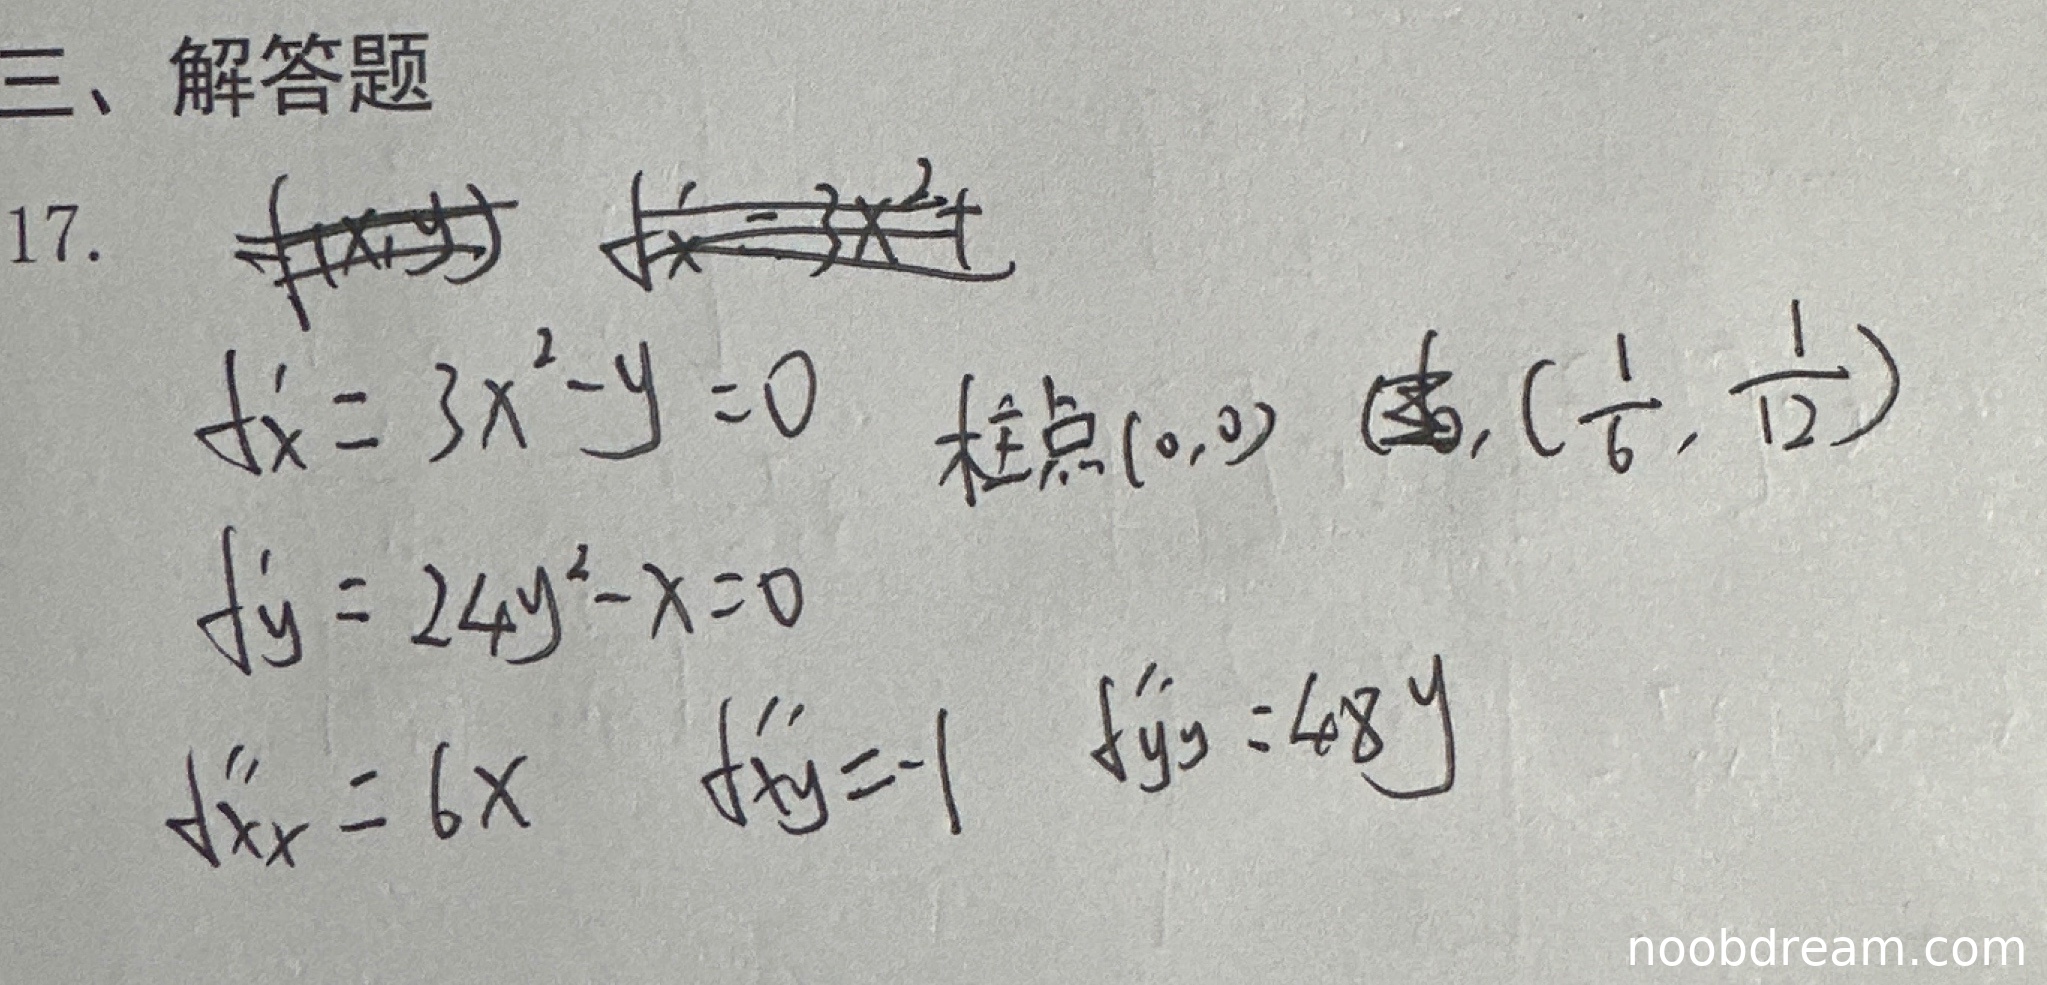 三、解答题
17. f(x,y) f'x = 3x²+
f'x = 3x²-y=0 驻点(0,0) , (1/6, 1/12)
f'y = 24y²-x=0
f''xx = 6x f''xy=-1 f''yy=48y
noobdream.com